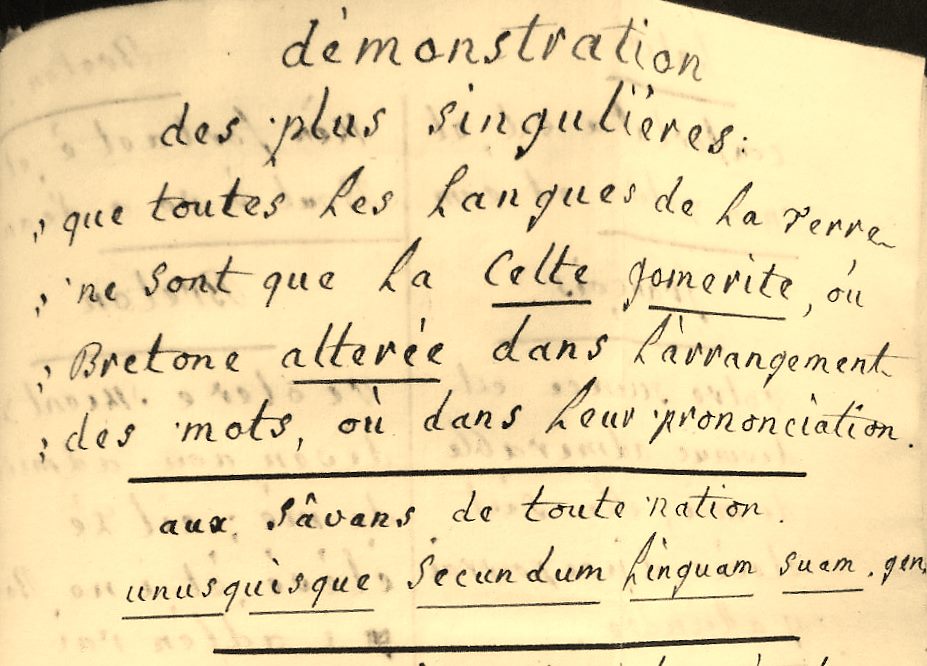 démonstration
des plus singulières:
„ que toutes les langues de la terre
„ ne sont que la Celte gomerite, où
„ Bretone alterée dans l'àrrangement
„ des mots, où dans leur prononciation.
aux sâvans de toute nation.
unusquisque secundum linguam suam. gen.